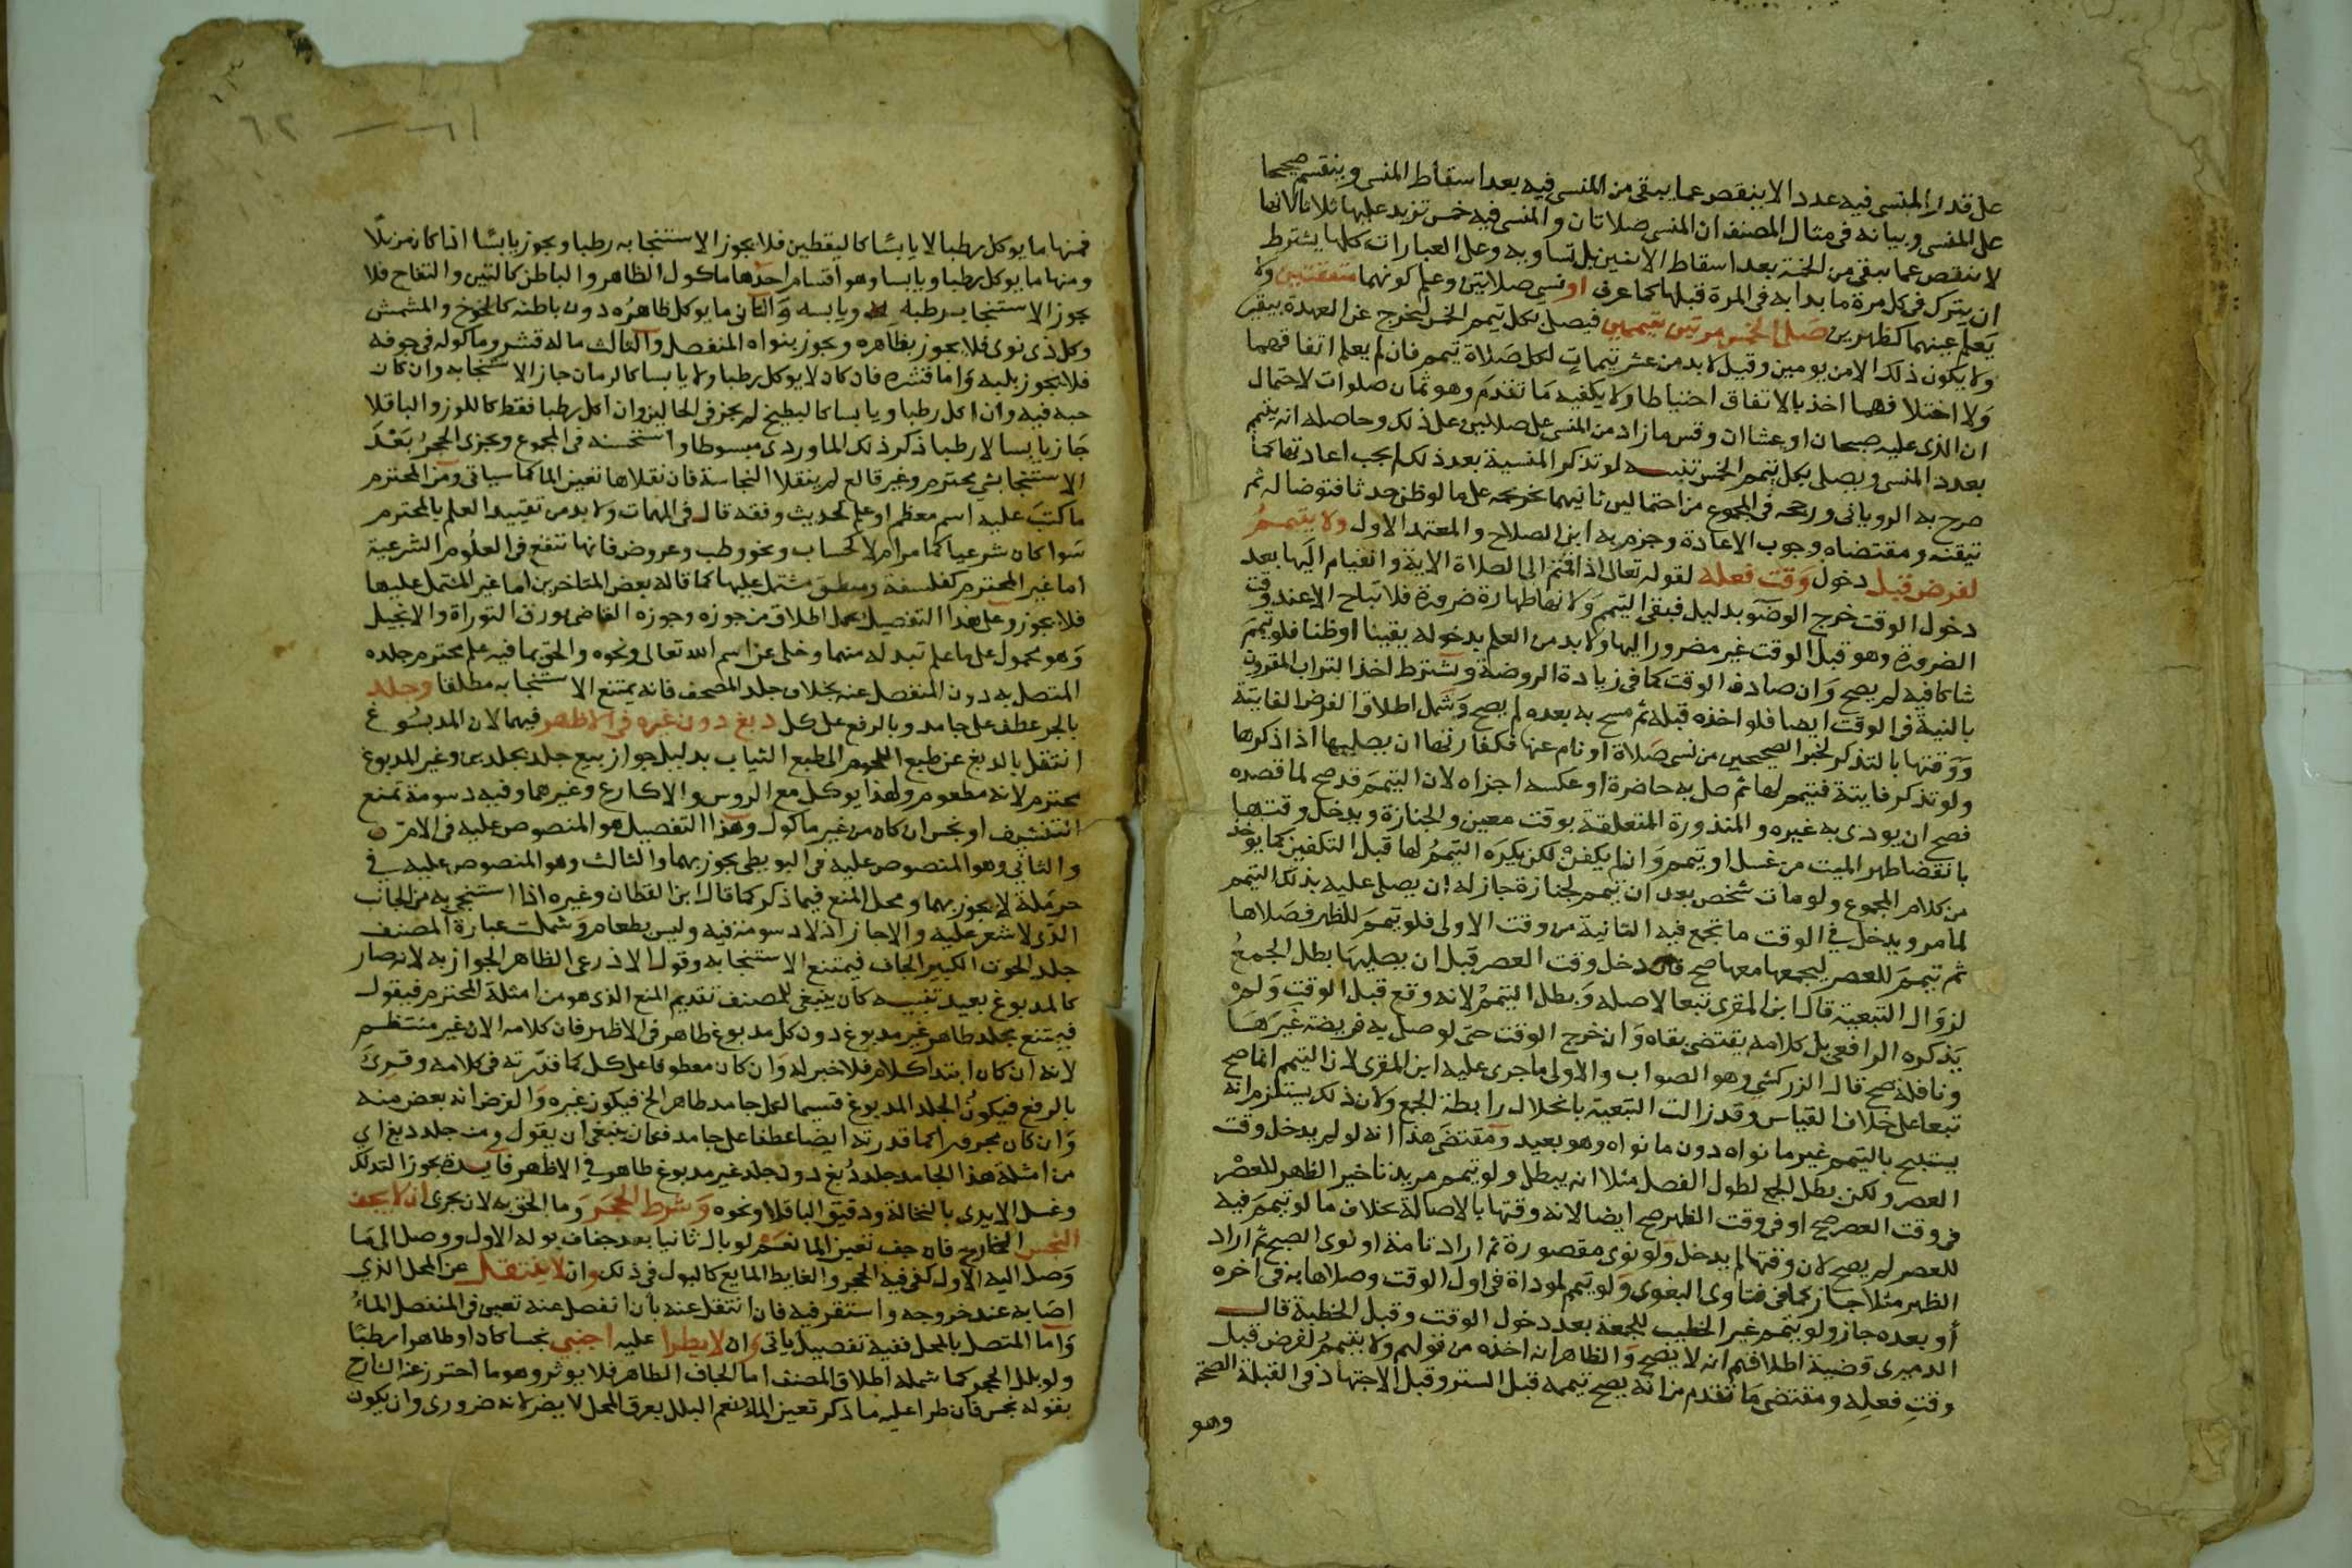 على قدر المنسي فيه عددا لا ينقص عما يبقى من المنسي فيه بعد اسقاط المنسي وينقسم صحيحا
على المنسي وبيانه في مثال المصنف ان المنسي صلاتان والمنسي فيه خمس تزيد عليها ثلاثا لانها
لا تنقص عما يبقى من الخمسة بعد اسقاط الاثنين بل تساويه وعلى العبارات كلها يشترط
ان يترك في كل مرة ما بدا به في المرة قبلها كما عرف او نسي صلاتين وعلم كونهما متفقتين ولا
يعلم عينهما كظهرين صلى الخمس مرتين بتيممين فيصلي بكل تيمم الخمس ليخرج عن العهدة بيقين
ولا يكون ذلك الا من يومين وقيل لا بد من عشر تيممات لكل صلاة تيمم فان لم يعلم اتفاقهما
ولا اختلافهما اخذ بالاتفاق احتياطا ولا يكفيه ما تقدم وهو ثمان صلوات لاحتمال
ان الذي عليه صبحان او عشاان وقس ما زاد من المنسي على صلاتين على ذلك وحاصله انه يتيمم
بعدد المنسي ويصلي بكل تيمم الخمس تنبيه لو تذكر المنسية بعد ذلك لم يجب اعادتها كما
صرح به الروياني ورجحه في المجموع من احتمالين ثانيهما تخريجه على ما لو ظن حدثا فتوضا له ثم
تيقنه ومقتضاه وجوب الاعادة وجزم به ابن الصلاح والمعتمد الاول ولا يتيمم
لفرض قبل دخول وقت فعله لقوله تعالى اذا قمتم الى الصلاة الاية والقيام اليها بعد
دخول الوقت خرج الوضو بدليل فبقي التيمم ولانها طهارة ضرورة فلا تباح الا عند وقت
الضرورة وهو قبل الوقت غير مضرور اليها ولا بد من العلم بدخوله يقينا او ظنا فلو تيمم
شاكا فيه لم يصح وان صادف الوقت كما في زيادة الروضة ويشترط اخذ التراب المقرون
بالنية في الوقت ايضا فلو اخذه قبله ثم مسح به بعده لم يصح وشمل اطلاق الفرض الفايتة
ووقتها بالتذكر لخبر الصحيحين من نسي صلاة او نام عنها فكفارتها ان يصليها اذا ذكرها
ولو تذكر فايتة فتيمم لها ثم صلى به حاضرة او عكسه اجزاه لان التيمم قد صح لما قصده
فصح ان يودي به غيره والمنذورة المتعلقة بوقت معين والجنازة ويدخل وقتها
بانقضا طهر الميت من غسل او تيمم وان لم يكفن لكن يكره التيمم لها قبل التكفين كما يوخذ
من كلام المجموع ولو مات شخص بعد ان تيمم لجنازة جاز له ان يصلي عليه بذلك التيمم
لما مر ويدخل في الوقت ما تجمع فيه الثانية من وقت الاولى فلو تيمم للظهر فصلاها
ثم تيمم للعصر ليجمعها معها صح فان دخل وقت العصر قبل ان يصليها بطل الجمع
لزوال التبعية قال ابن المقري تبعا لاصله وبطل التيمم لانه وقع قبل الوقت ولم
يذكره الرافعي بل كلامه يقتضي بقاه وان خرج الوقت حتى لو صلى به فريضة غيرها
ونافلة صح قال الزركشي وهو الصواب والاولى ما جرى عليه ابن المقري لان التيمم انما صح
تبعا على خلاف القياس وقد زالت التبعية بانحلال رابطة الجمع ولان ذلك يستلزم انه
يستبيح بالتيمم غير ما نواه دون ما نواه وهو بعيد ومقتضى هذا انه لو لم يدخل وقت
العصر ولكن بطل الجمع لطول الفصل مثلا انه يبطل ولو تيمم مريد تاخير الظهر للعصر
في وقت العصر صح او في وقت الظهر صح ايضا لانه وقتها بالاصالة بخلاف ما لو تيمم فيه
للعصر لم يصح لان وقتها لم يدخل ولو نوى مقصورة ثم اراد تامة او نوى الصبح ثم اراد
الظهر مثلا جاز كما في فتاوى البغوي ولو تيمم لموداة في اول الوقت وصلاها به في اخره
أو بعده جاز ولو تيمم غير الخطيب للجمعة بعد دخول الوقت وقبل الخطبة قال
الدميري قضية اطلاقهم انه لا يصح والظاهر انه اخذه من قولهم ولا يتيمم لفرض قبل
وقت فعله ومقتضى ما تقدم من انه يصح تيممه قبل الستر وقبل الاجتهاد في القبلة الصحة
وهو
٦٢
فمنها ما يوكل رطبا لا يابسا كاليقطين فلا يجوز الاستنجا به رطبا ويجوز يابسا اذا كان مزيلا
ومنها ما يوكل رطبا ويابسا وهو اقسام احدها ماكول الظاهر والباطن كالتين والتفاح فلا
يجوز الاستنجا برطبه ويابسه والثاني ما يوكل ظاهره دون باطنه كالخوخ والمشمش
وكل ذي نوى فلا يجوز بظاهره ويجوز بنواه المنفصل والثالث ما له قشر وماكوله في جوفه
فلا يجوز بلبه واما قشره فان كان لا يوكل رطبا ولا يابسا كالرمان جاز الاستنجا به وان كان
حبه فيه وان اكل رطبا ويابسا كالبطيخ لم يجز في الحالين وان اكل رطبا فقط كاللوز والباقلا
جاز يابسا لا رطبا ذكر ذلك الماوردي مبسوطا واستحسنه في المجموع ويجزي الحجر بعد
الاستنجا بشي محترم وغير قالع لم ينقلا النجاسة فان نقلاها تعين الما كما سياتي ومن المحترم
ما كتب عليه اسم معظم او علم كحديث وفقه قال في المهمات ولا بد من تقييد العلم بالمحترم
سوا كان شرعيا كما مر ام لا كحساب ونحو وطب وعروض فانها تنفع في العلوم الشرعية
اما غير المحترم كفلسفة ومنطق مشتمل عليها كما قاله بعض المتاخرين اما غير المشتمل عليها
فلا يجوز وعلى هذا التفصيل يحمل اطلاق من جوزه وجوزه القاضي بورق التوراة والانجيل
وهو محمول على ما علم تبدله منهما وخلي عن اسم الله تعالى ونحوه والحق بما فيه علم محترم جلده
المتصل به دون المنفصل عنه بخلاف جلد المصحف فانه يمتنع الاستنجا به مطلقا وجلد
بالجر عطف على جامد وبالرفع على كل دبغ دون غيره في الاظهر فيهما لان المدبوغ
انتقل بالدبغ عن طبع اللحوم الى طبع الثياب بدليل جواز بيع جلد بجلدين وغير المدبوغ
محترم لانه مطعوم ولهذا يوكل مع الروس والاكارع وغيرهما وفيه دسومة تمنع
التنشيف او نجس ان كان من غير ماكول وهذا التفصيل هو المنصوص عليه في الام
والثاني وهو المنصوص عليه في البويطي يجوز بهما والثالث وهو المنصوص عليه في
حرملة لا يجوز بهما ومحل المنع فيما ذكر كما قال ابن القطان وغيره اذا استنجى به من الجانب
الذي لا شعر عليه والا جاز اذ لا دسومة فيه وليس بطعام وشملت عبارة المصنف
جلد الحوت الكبير الجاف فيمتنع الاستنجا به وقول الاذرعي الظاهر الجواز به لانه صار
كالمدبوغ بعيد تنبيه كان ينبغي للمصنف تقديم المنع الذي هو من امثلة المحترم فيقول
فيمتنع بجلد طاهر غير مدبوغ دون كل مدبوغ طاهر في الاظهر فان كلامه الان غير منتظم
لانه ان كان ابتدا كلام فلا خبر له وان كان معطوفا على كل كما قدرته في كلامه وقرئ
بالرفع فيكون الجلد المدبوغ قسيما لكل جامد طاهر الخ فيكون غيره والفرض انه بعض منه
وان كان مجرورا كما قدرته ايضا عطفا على جامد فكان ينبغي ان يقول ومنه جلد دبغ اي
من امثلة هذا الجامد جلد دبغ دون جلد غير مدبوغ طاهر في الاظهر فايدة يجوز التدلك
وغسل الايدي بالنخالة ودقيق الباقلا ونحوه وشرط الحجر وما الحق به لان يجزى ان لا يجف
النجس الخارج فان جف تعين الما نعم لو بال ثانيا بعد جفاف بوله الاول ووصل الى ما
وصل اليه الاول كفى فيه الحجر والغايط المايع كالبول في ذلك وان لا ينتقل عن المحل الذي
اصابه عند خروجه واستقر فيه فان انتقل عنه بان انفصل عنه تعين في المنفصل الماء
واما المتصل بالمحل ففيه تفصيل ياتي وان لا يطرا عليه اجنبي نجسا كان او طاهرا رطبا
ولو بلل الحجر كما شمله اطلاق المصنف اما الجاف الطاهر فلا يوثر وهو ما احترز عنه الشارح
بقوله نجس فان طرا عليه ما ذكر تعين الما نعم البلل بعرق المحل لا يضر لانه ضروري وان يكون